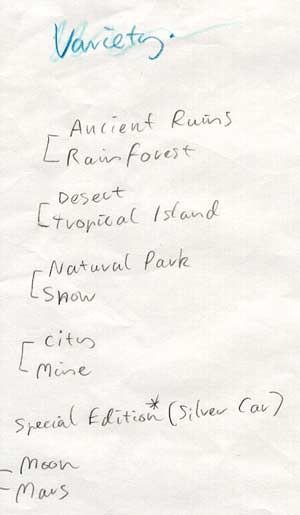 Variety.
Ancient Ruins
Rainforest
Desert
Tropical Island
Natural Park
Snow
City
Mine
Special Edition* (Silver Car)
Moon
Mars